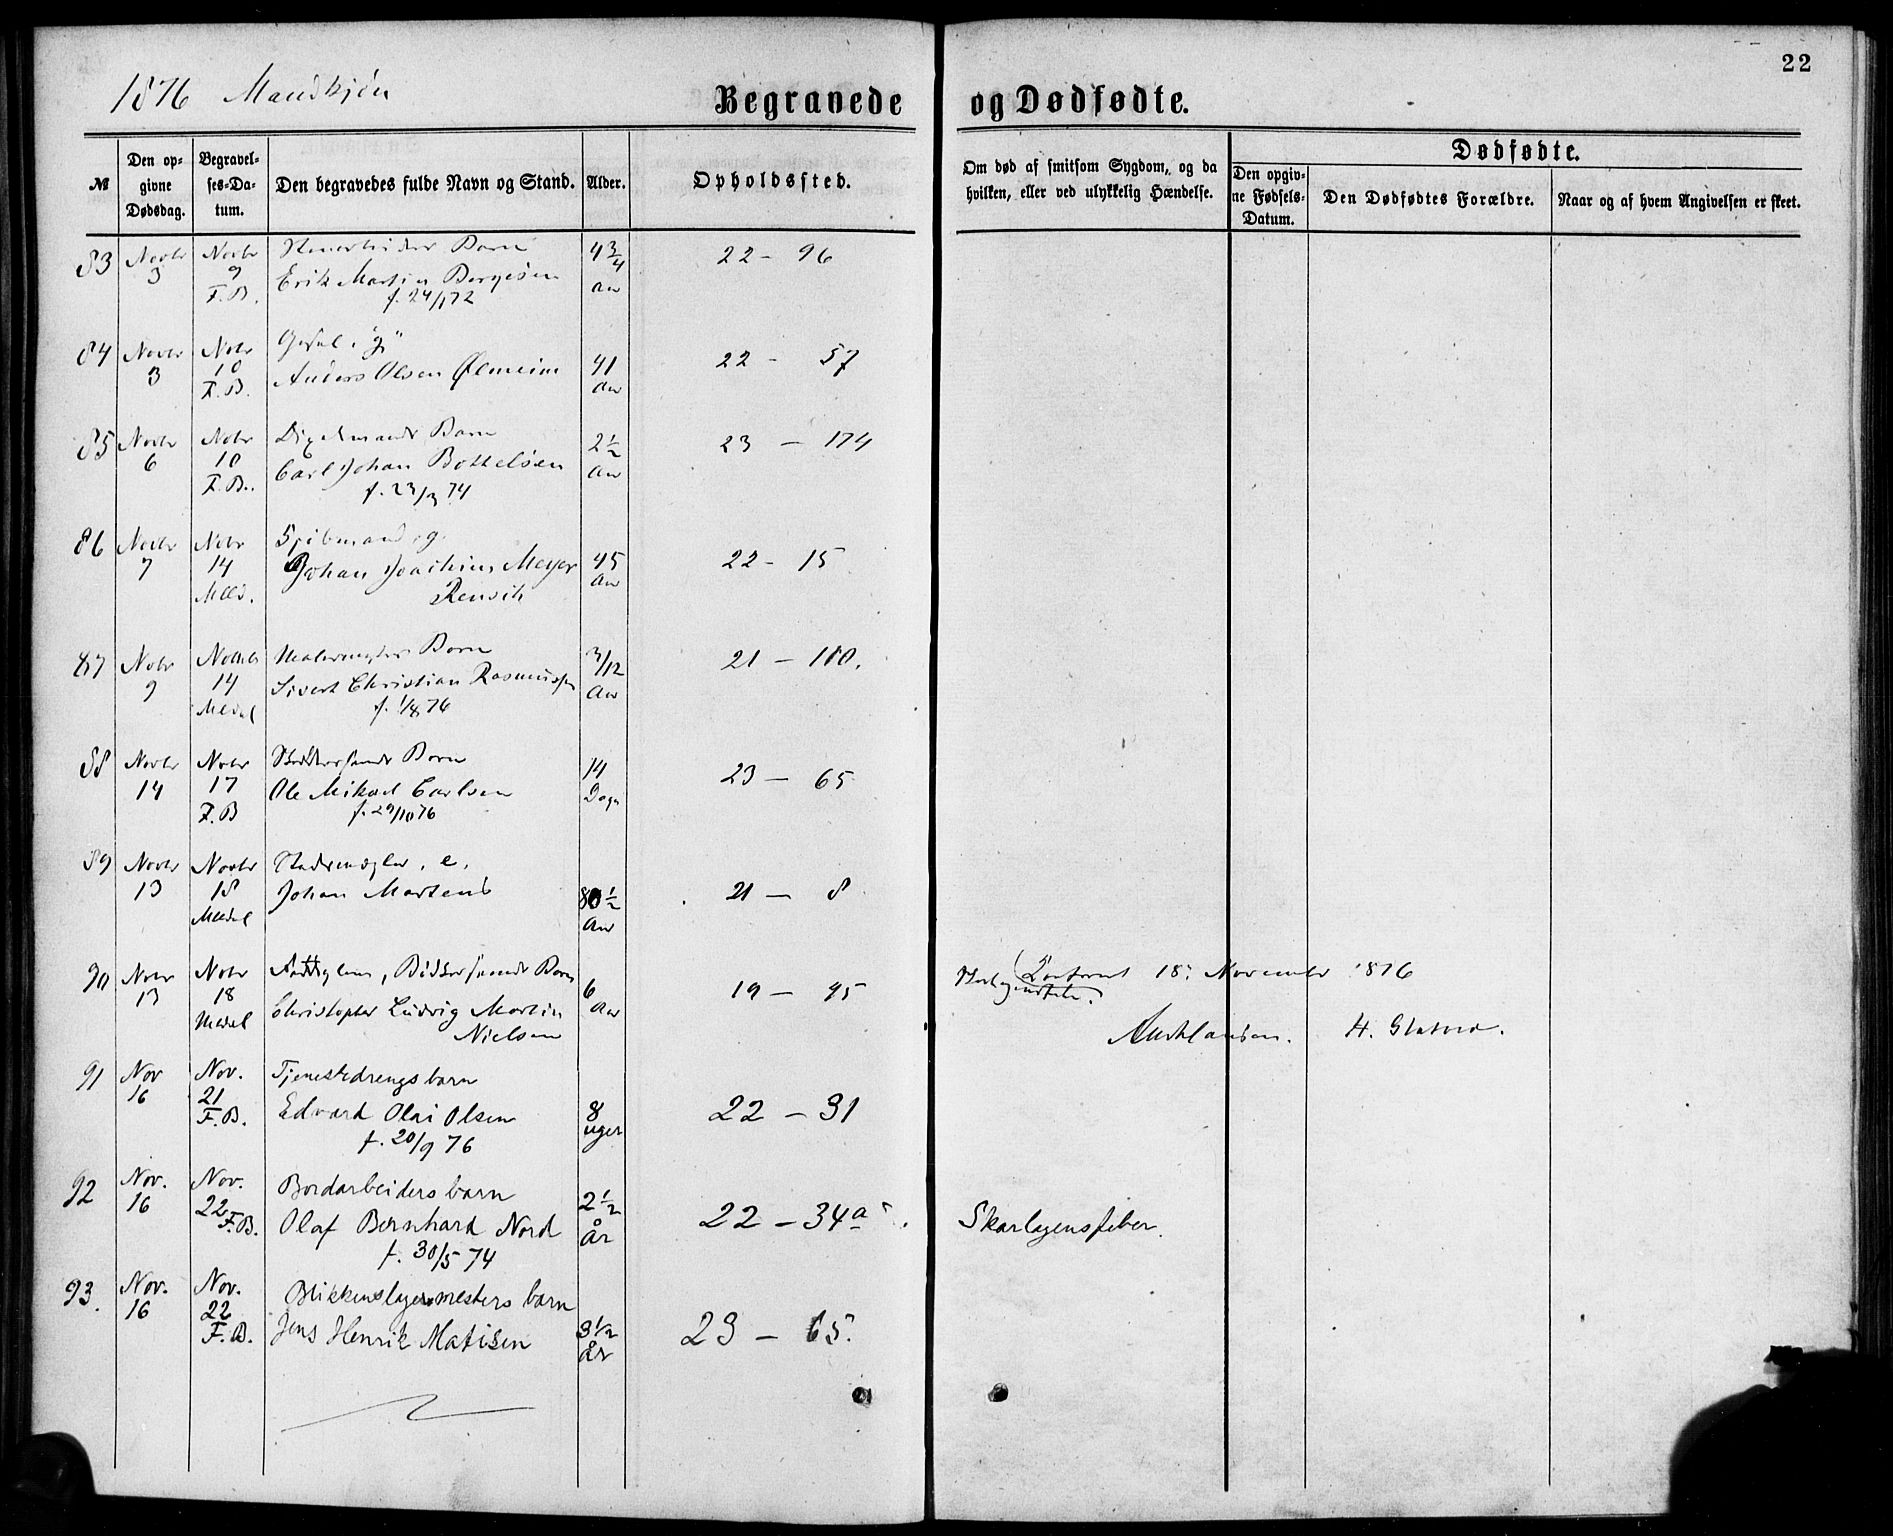 22
1876 Mandkjøn
Begravede og Dødfødte.
№
Den opgivne Dødsdag.
Begravelses-Datum.
Den begravedes fulde Navn og Stand.
Alder.
Opholdssted.
Om død af smitsom Sygdom, og da hvilken, eller ved ulykkelig Hændelse.
Dødfødte.
Den opgivne Fødsels-Datum.
Den Dødfødtes Forældre.
Naar og af hvem Angivelsen er skeet.
83 Novbr 3 Novbr 9 F.B. Barn
Erik Martin Børgesen f. 24/1 72 4 3/4 Aar 22 - 96
84 Novbr 3 Nobr 10 F.B. "g"
Anders Olsen 41 Aar 22 - 57
85 Novbr 6 Nobr 10 F.B. Barn
Carl Johan Bottelsen f. 23/3 74 2 1/2 Aar 23 - 174
86 Novbr 7 Nobr 14 g.
Johan Joachim Meyer 45 Aar 22 - 15
87 Nobr 9 14 Barn
Sivert Christian Rasmussen f. 1/8 76 3/12 Aar 21 - 110.
88 Novbr 14 Nobr 17 F.B Barn
Ole Mikael Carlsen f. 29/10 76 14 Dage 23 - 65
89 Novbr 13 Novbr 18 e.
Johan Martens 80 1/2 Aar 21 - 8
90 Nobr 13 Nobr 18 Barn
Christopher Ludvig Martin Nielsen 6 Aar 19 - 45
18. November 1876
91 Nov 16 Nov. 21 F.B. Tjenestedrengs barn
Edvard Olai Olsen f. 20/9 76 8 uger 22 - 31
92 Nov. 16 Nov. 22 F.B. Bordarbeiders barn
Olaf Bernhard Nord f. 30/5 74 2 1/2 År 22 - 34a Skarlagensfeber.
93. Nov. 16 Nov. 22 F.B. Blikkenslagermesters barn
Jens Henrik Matisen 3 1/2 År 23 - 65.